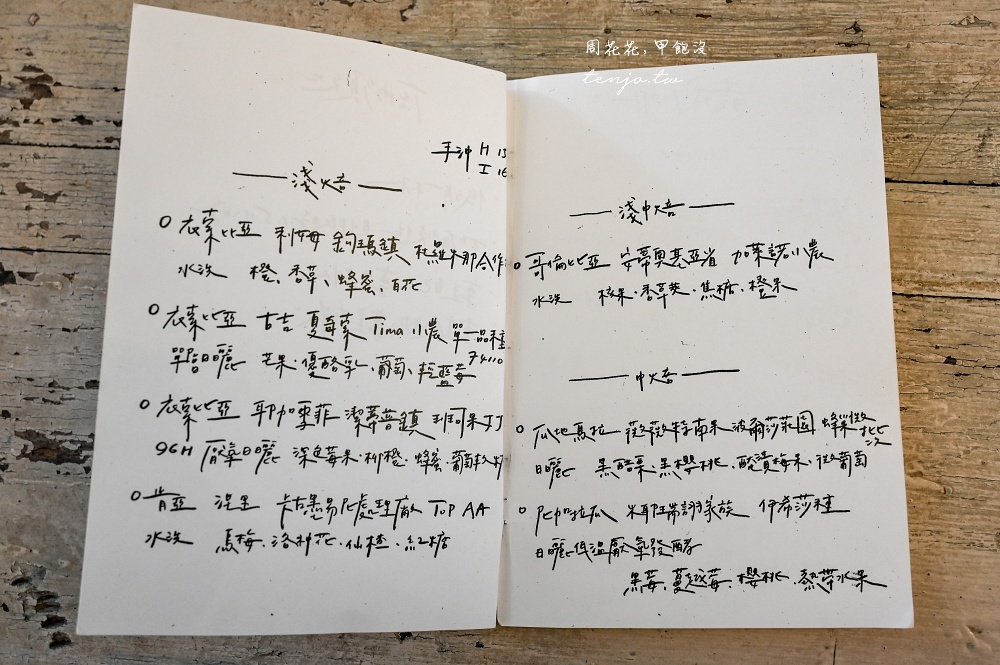 周花花，甲飽沒
tenjo.tw
手沖 H 15
I 16
淺焙
衣索比亞 利姆 鉤瑪鎮 杜羅米那合作
水洗 橙、香草、蜂蜜、百花
衣索比亞 古吉 夏奇索 Tima 小農 單一品種
74110
單階日曬 芒果·優酪乳·葡萄·輕藍莓
衣索比亞 耶加雪菲 潔蒂普鎮 班可果丁丁
96H 厭氧日曬 深色莓果·柳橙·蜂蜜·葡萄
肯亞 涅里 卡古墨易處理廠 TOP AA
水洗 烏梅·洛神花·仙楂·紅糖
淺中焙
哥倫比亞 安蒂奧基亞省 加葉諾小農
水洗 核果·香草莢·焦糖·橙果
中焙
瓜地馬拉 薇薇特南果 波爾莎莊園 蜂巢微
批次
日曬 黑醋栗·黑櫻桃·醃漬梅果·微葡萄
尼加拉瓜 米耶瑞詩家族 伊希莎種
日曬低溫厭氧發酵
黑莓·蔓越莓·櫻桃·熱帶水果